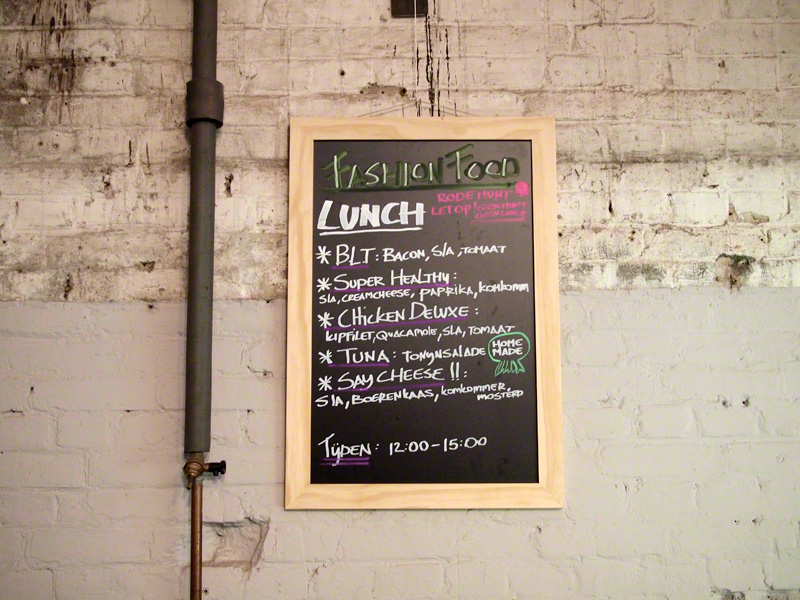 FASHION FOOD
LUNCH
RODE MUNT
LET OP!
* BLT: BACON, SLA, TOMAAT
* SUPER HEALTHY:
SLA, CREAMCHEESE, PAPRIKA, KOMKOMM
* CHICKEN DELUXE:
KIPFILET, QUACAMOLE, SLA, TOMAAT
* TUNA: TONIJNSALADE
HOME
MADE
* SAY CHEESE !!:
SLA, BOERENKAAS, KOMKOMMER,
MOSTERD
TIJDEN: 12:00-15:00